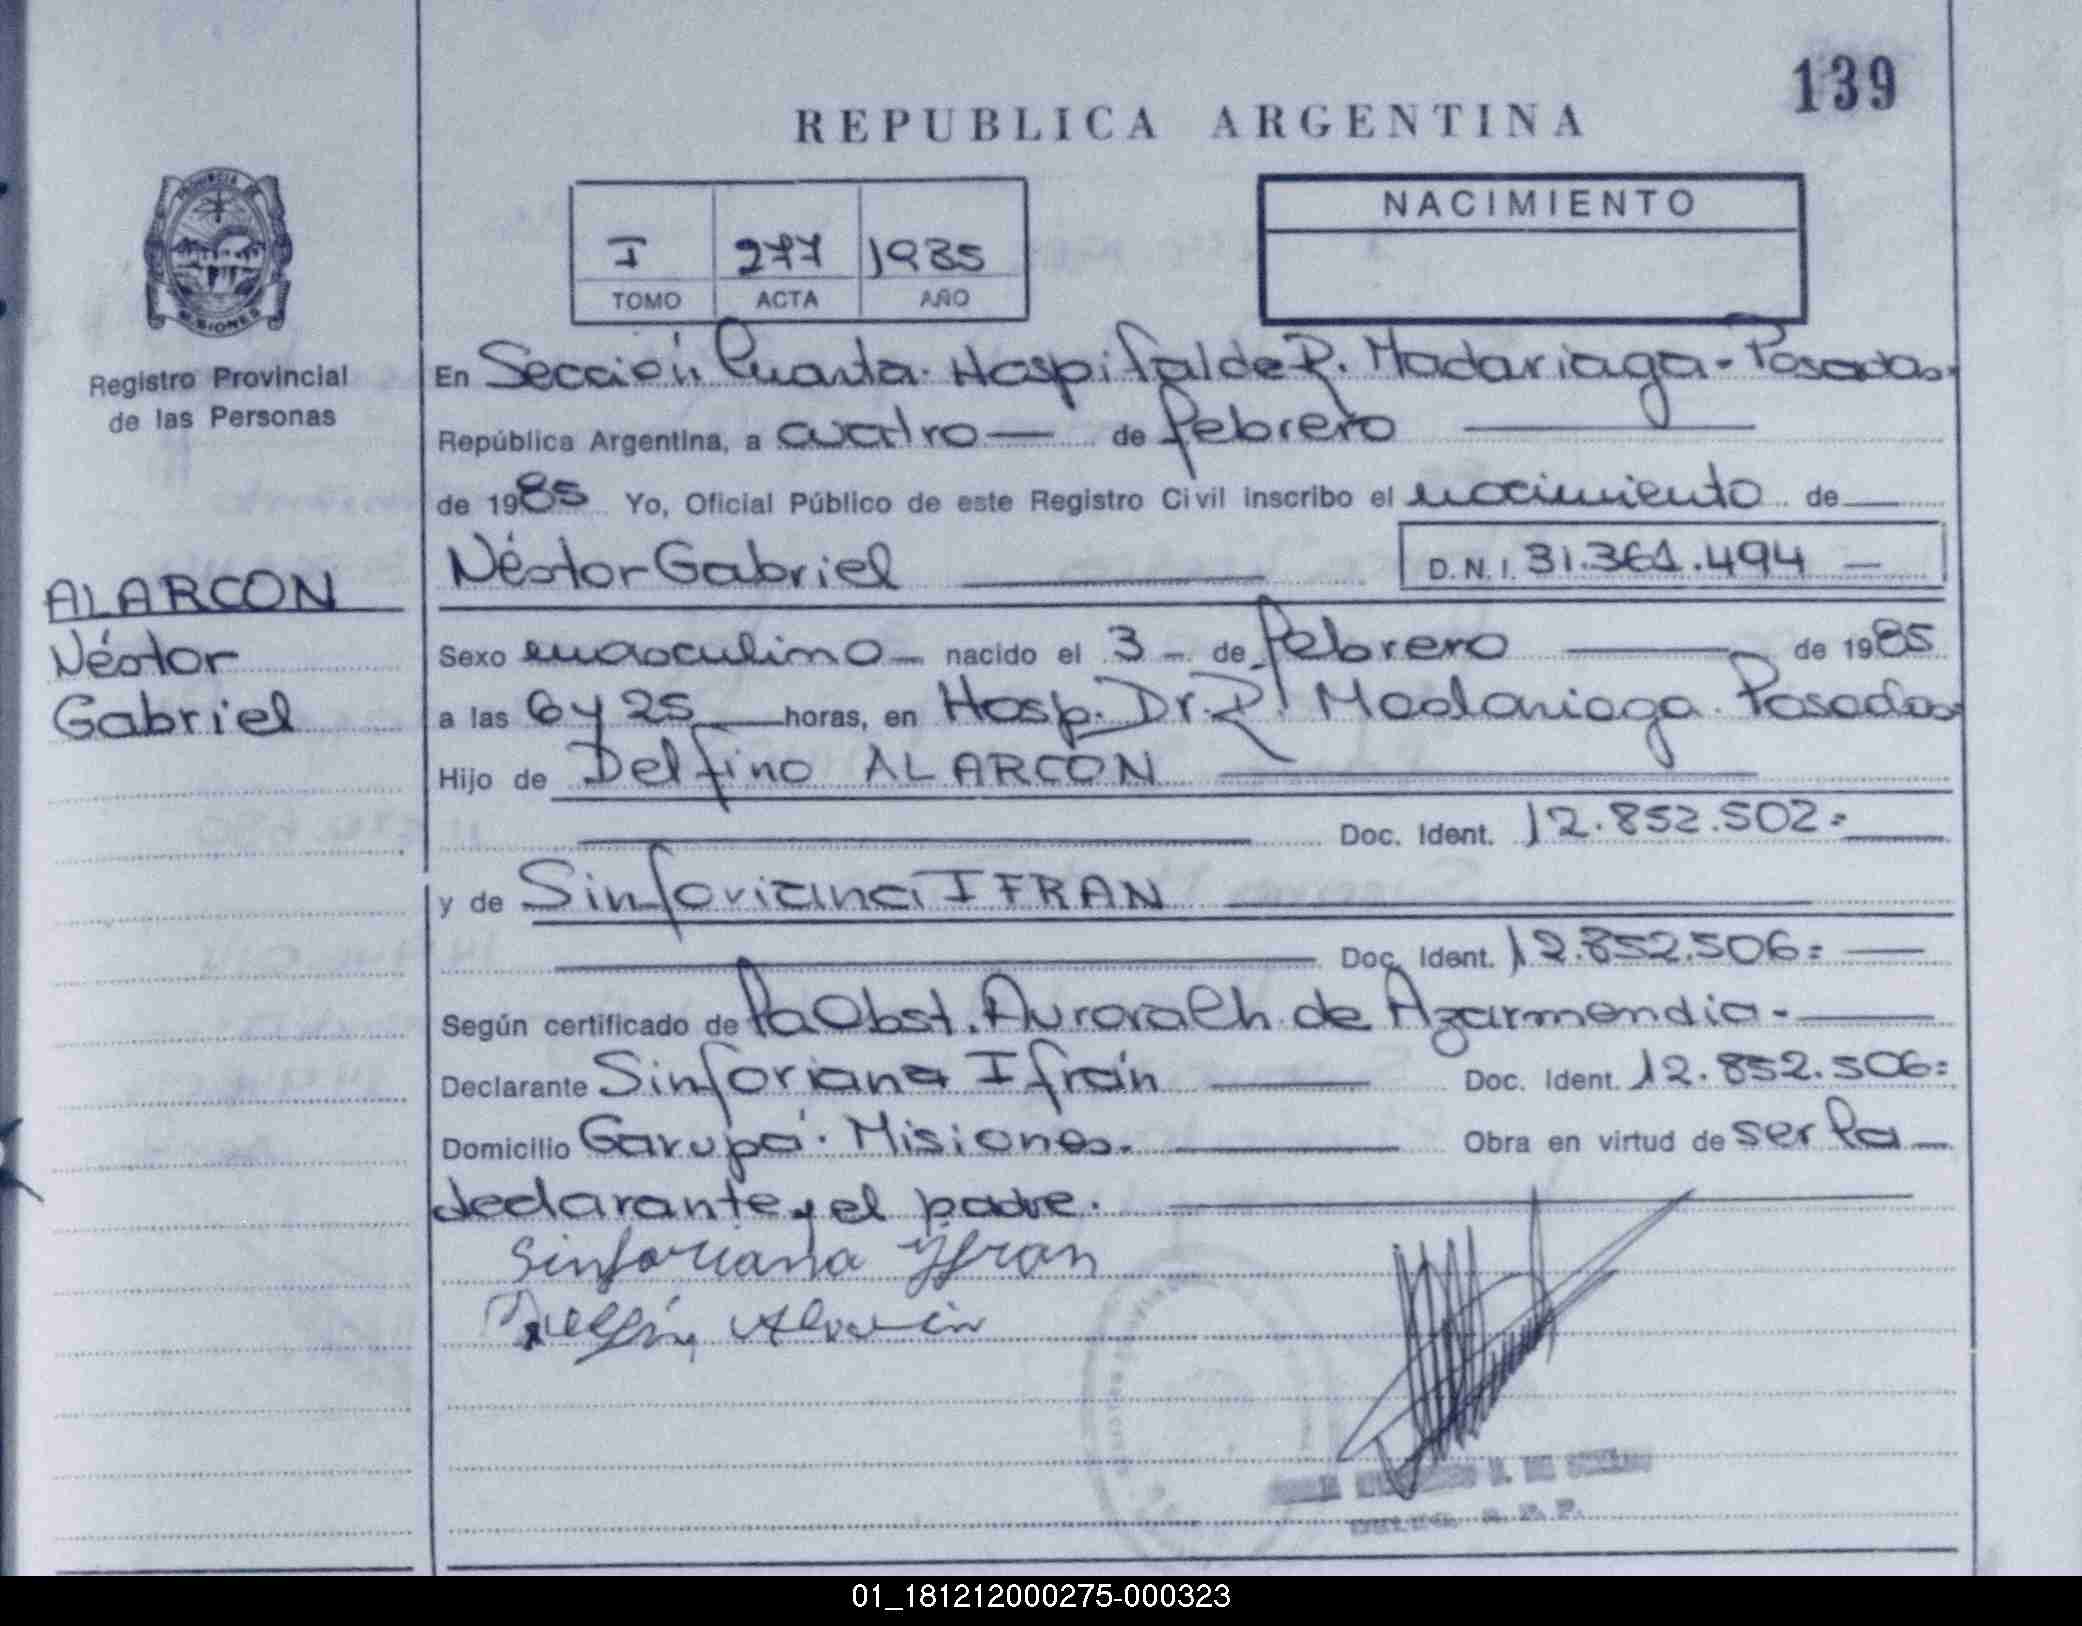 139
REPUBLICA ARGENTINA
PROVINCIA DE
MISIONES
I 277 1985
TOMO ACTA AÑO
NACIMIENTO
Registro Provincial
de las Personas
ALARCON
Néstor
Gabriel
En Sección Cuarta. Hospital de R. Madariaga - Posadas.
República Argentina, a cuatro — de febrero
de 1985 Yo, Oficial Público de este Registro Civil inscribo el nacimiento de
Néstor Gabriel D.N.I. 31.361.494 —
Sexo masculino — nacido el 3 — de febrero de 1985
a las 6 y 25 horas, en Hosp. Dr. R. Madariaga. Posadas
Hijo de Delfino ALARCON
Doc. Ident. 12.852.502.
y de Sinforiana IFRAN
Doc. Ident. 12.852.506=
Según certificado de la Obst. Aurora Ch. de Azarmendia.
Declarante Sinforiana Ifrán Doc. Ident. 12.852.506=
Domicilio Garupá. Misiones. Obra en virtud de ser la
declarante y el padre.
Sinforiana Yfran
01_181212000275-000323